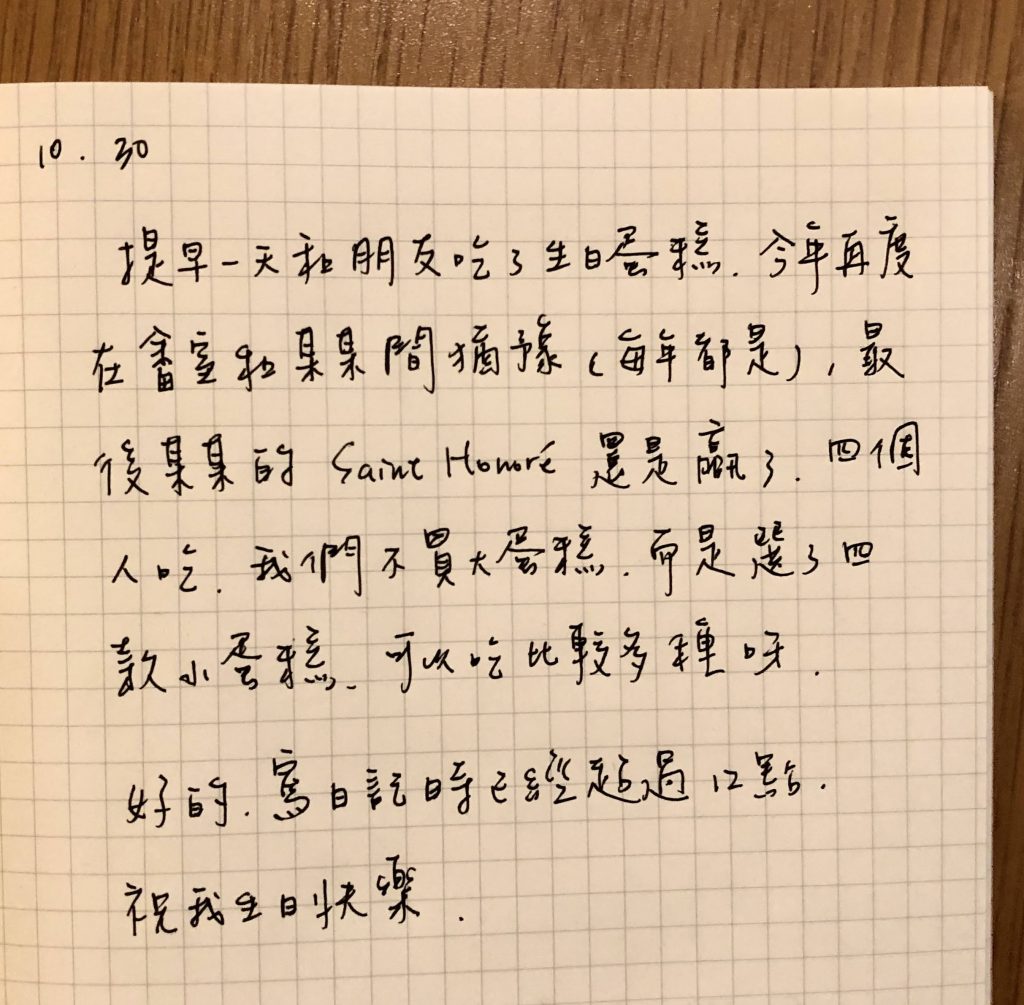 10.30
提早一天和朋友吃了生日蛋糕.今年再度
在畬室和某某間猶豫(每年都是),最
後某某的 Saint Honoré 還是贏了.四個
人吃.我們不買大蛋糕.而是選了四
款小蛋糕、可以吃比較多種呀.
好的.寫日記時已經超過12點.
祝我生日快樂.